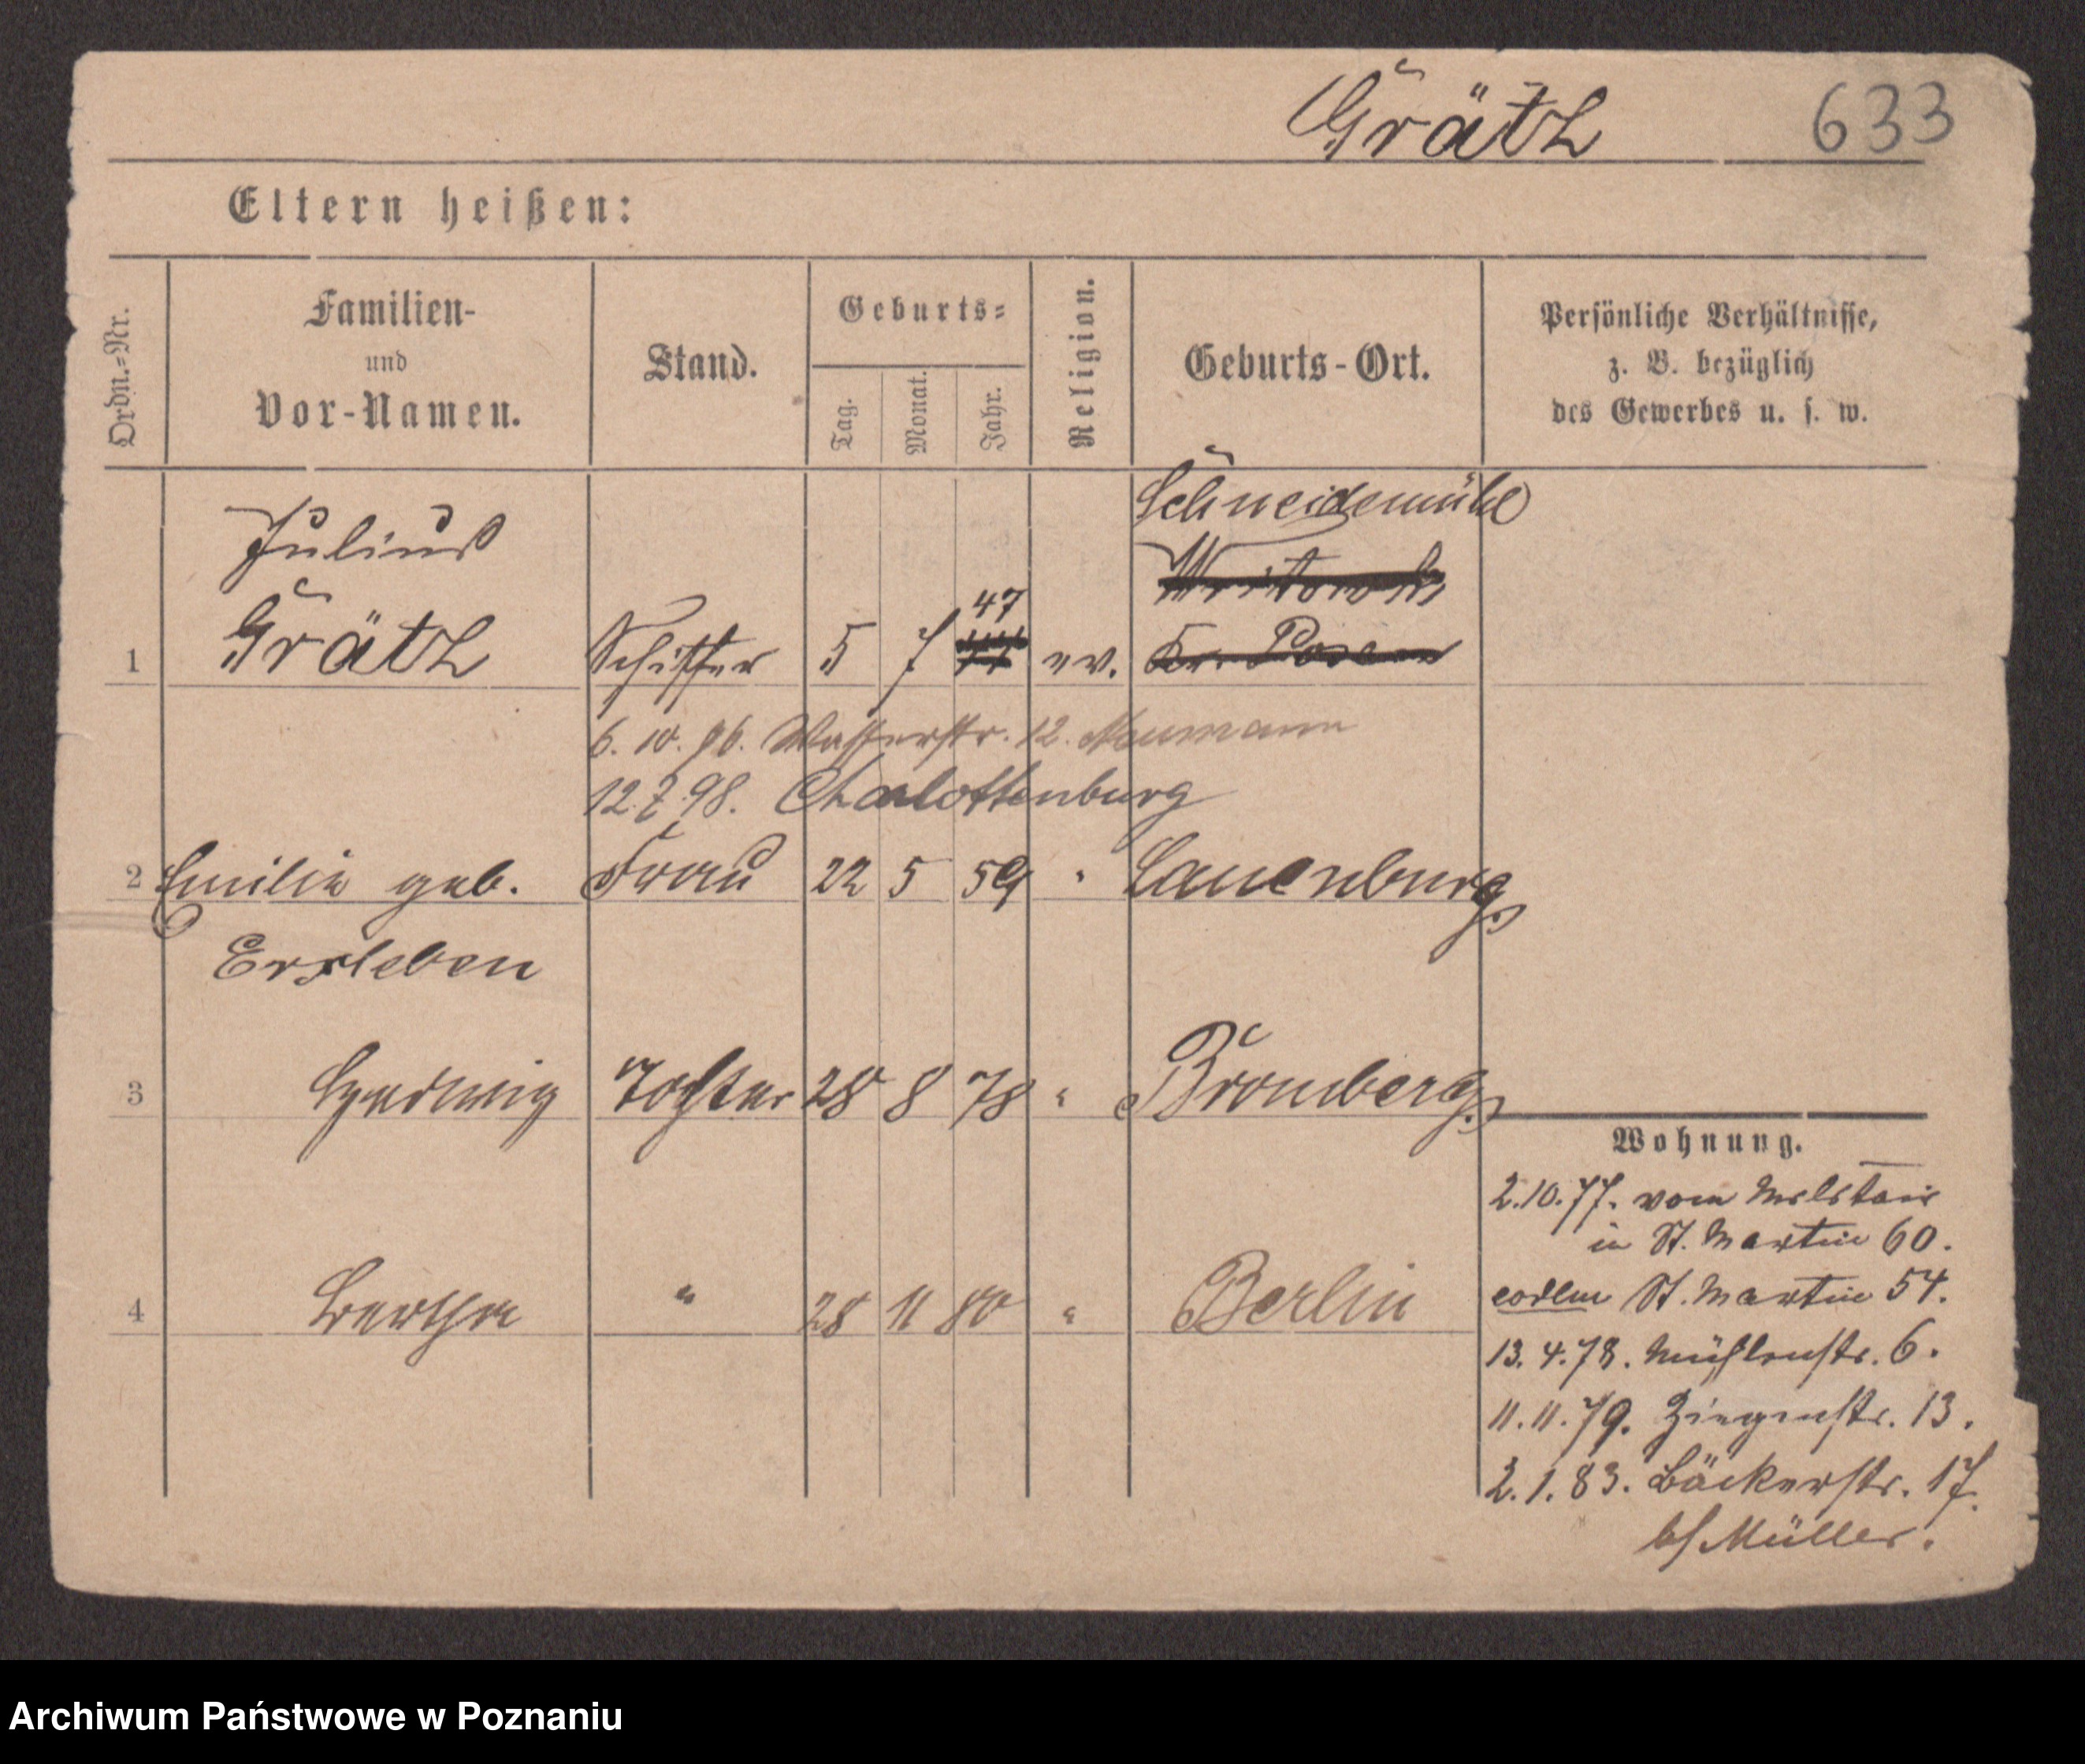 Grätz 633
Eltern heißen:
Ordn.=Nr.
Familien-
und
Vor-Namen.
Stand.
Geburts=
Tag.
Monat.
Jahr.
Religion.
Geburts-Ort.
Persönliche Verhältnisse,
z. B. bezüglich
des Gewerbes u. s. w.
Schneidemühl
Julius
47
1 Grätz Schiffer 5 7 ev. Kr. Posen
6. 10. 96. Wasserstr. 12. Neumann
12.7.98. Charlottenburg
2 Emilie geb. Frau 22 5 59 " Lauenburg
Erxleben
3 Hedwig Tochter 28 8 78 " Bromberg
4 Bertha " 28 11 80 " Berlin
Wohnung.
2.10.77. vom Militair
in St. Martin 60.
eodem St. Martin 54.
13.4.78. Mühlenstr. 6.
11.11.79. Ziegenstr. 13.
2.1.83. Bäckerstr. 17.
b/ Müller.
Archiwum Państwowe w Poznaniu